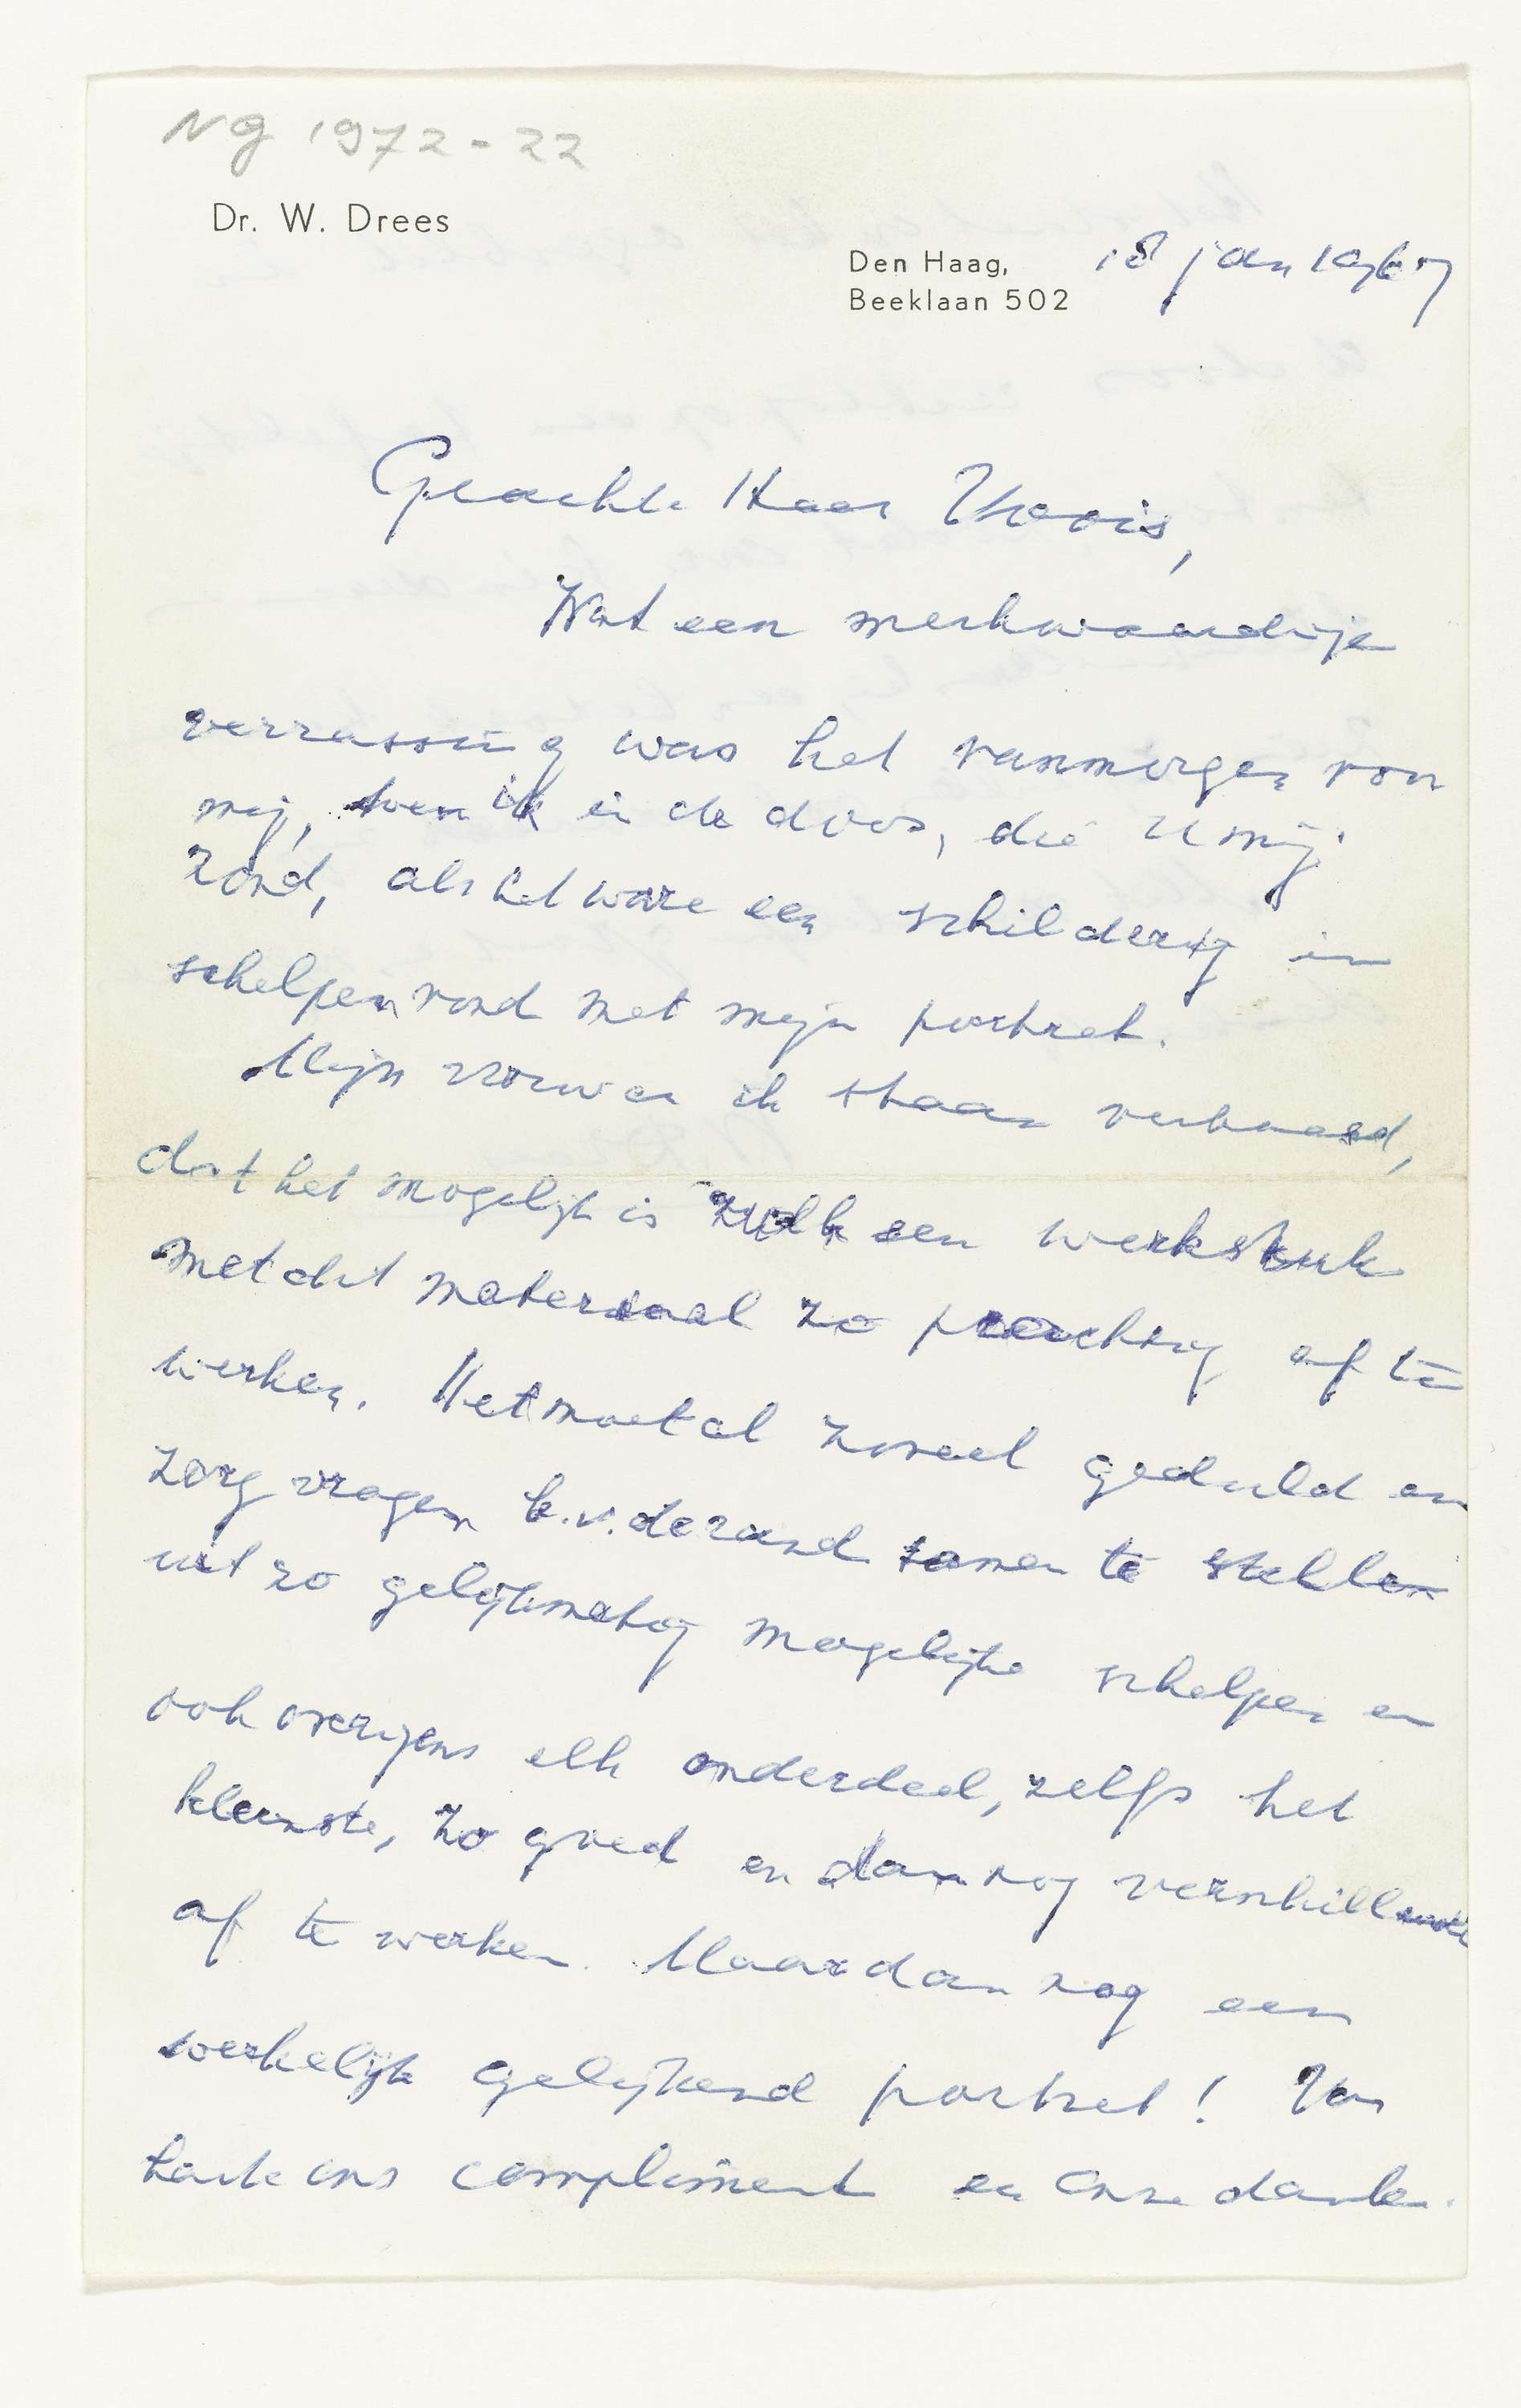 NG 1972-22
Dr. W. Drees
Den Haag, 18 jan 1967
Beeklaan 502
Geachte Heer
Wat een merkwaardige
verrassing was het vanmorgen voor
mij, toen ik in de doos, die U mij
zond, als het ware een schilderij in
schelpen vond met mijn portret.
Mijn vrouw en ik staan verbaasd,
dat het mogelijk is zulk een werkstuk
met dit materiaal zo prachtig af te
werken. Het moet al zoveel geduld en
zorg vragen b.v. de rand samen te stellen
uit zo gelijkmatig mogelijke schelpen en
ook overigens elk onderdeel, zelfs het
kleinste, zo goed en dan nog
af te werken. Maar dan nog een
werkelijk gelijkend portret! Van
harte ons compliment en onze dank.